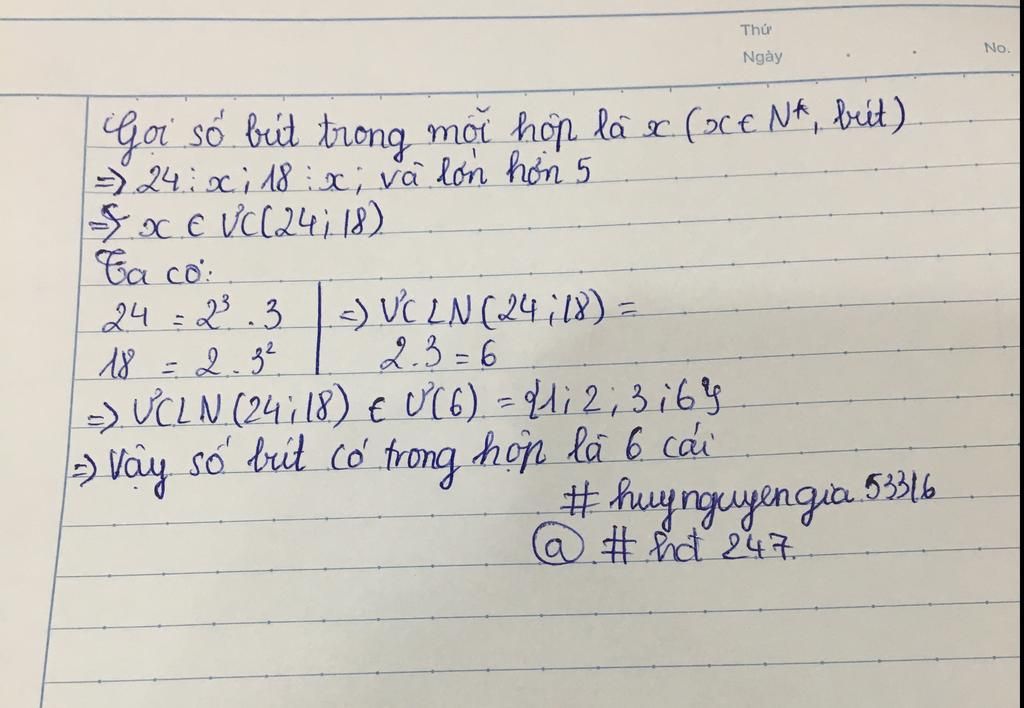 Thứ
Ngày
No.
Gọi số bút trong mỗi hộp là x (x ∈ N*, bút)
=> 24 ⋮ x ; 18 ⋮ x ; và lớn hơn 5
=> x ∈ ƯC(24 ; 18)
Ta có:
24 = 2³ . 3 | => ƯCLN(24 ; 18) =
18 = 2 . 3² | 2.3 = 6
=> ƯCLN(24 ; 18) ∈ Ư(6) = {1 ; 2 ; 3 ; 6}
=> Vậy số bút có trong hộp là 6 cái
# huynguyengia 53316
@ # hct 247.